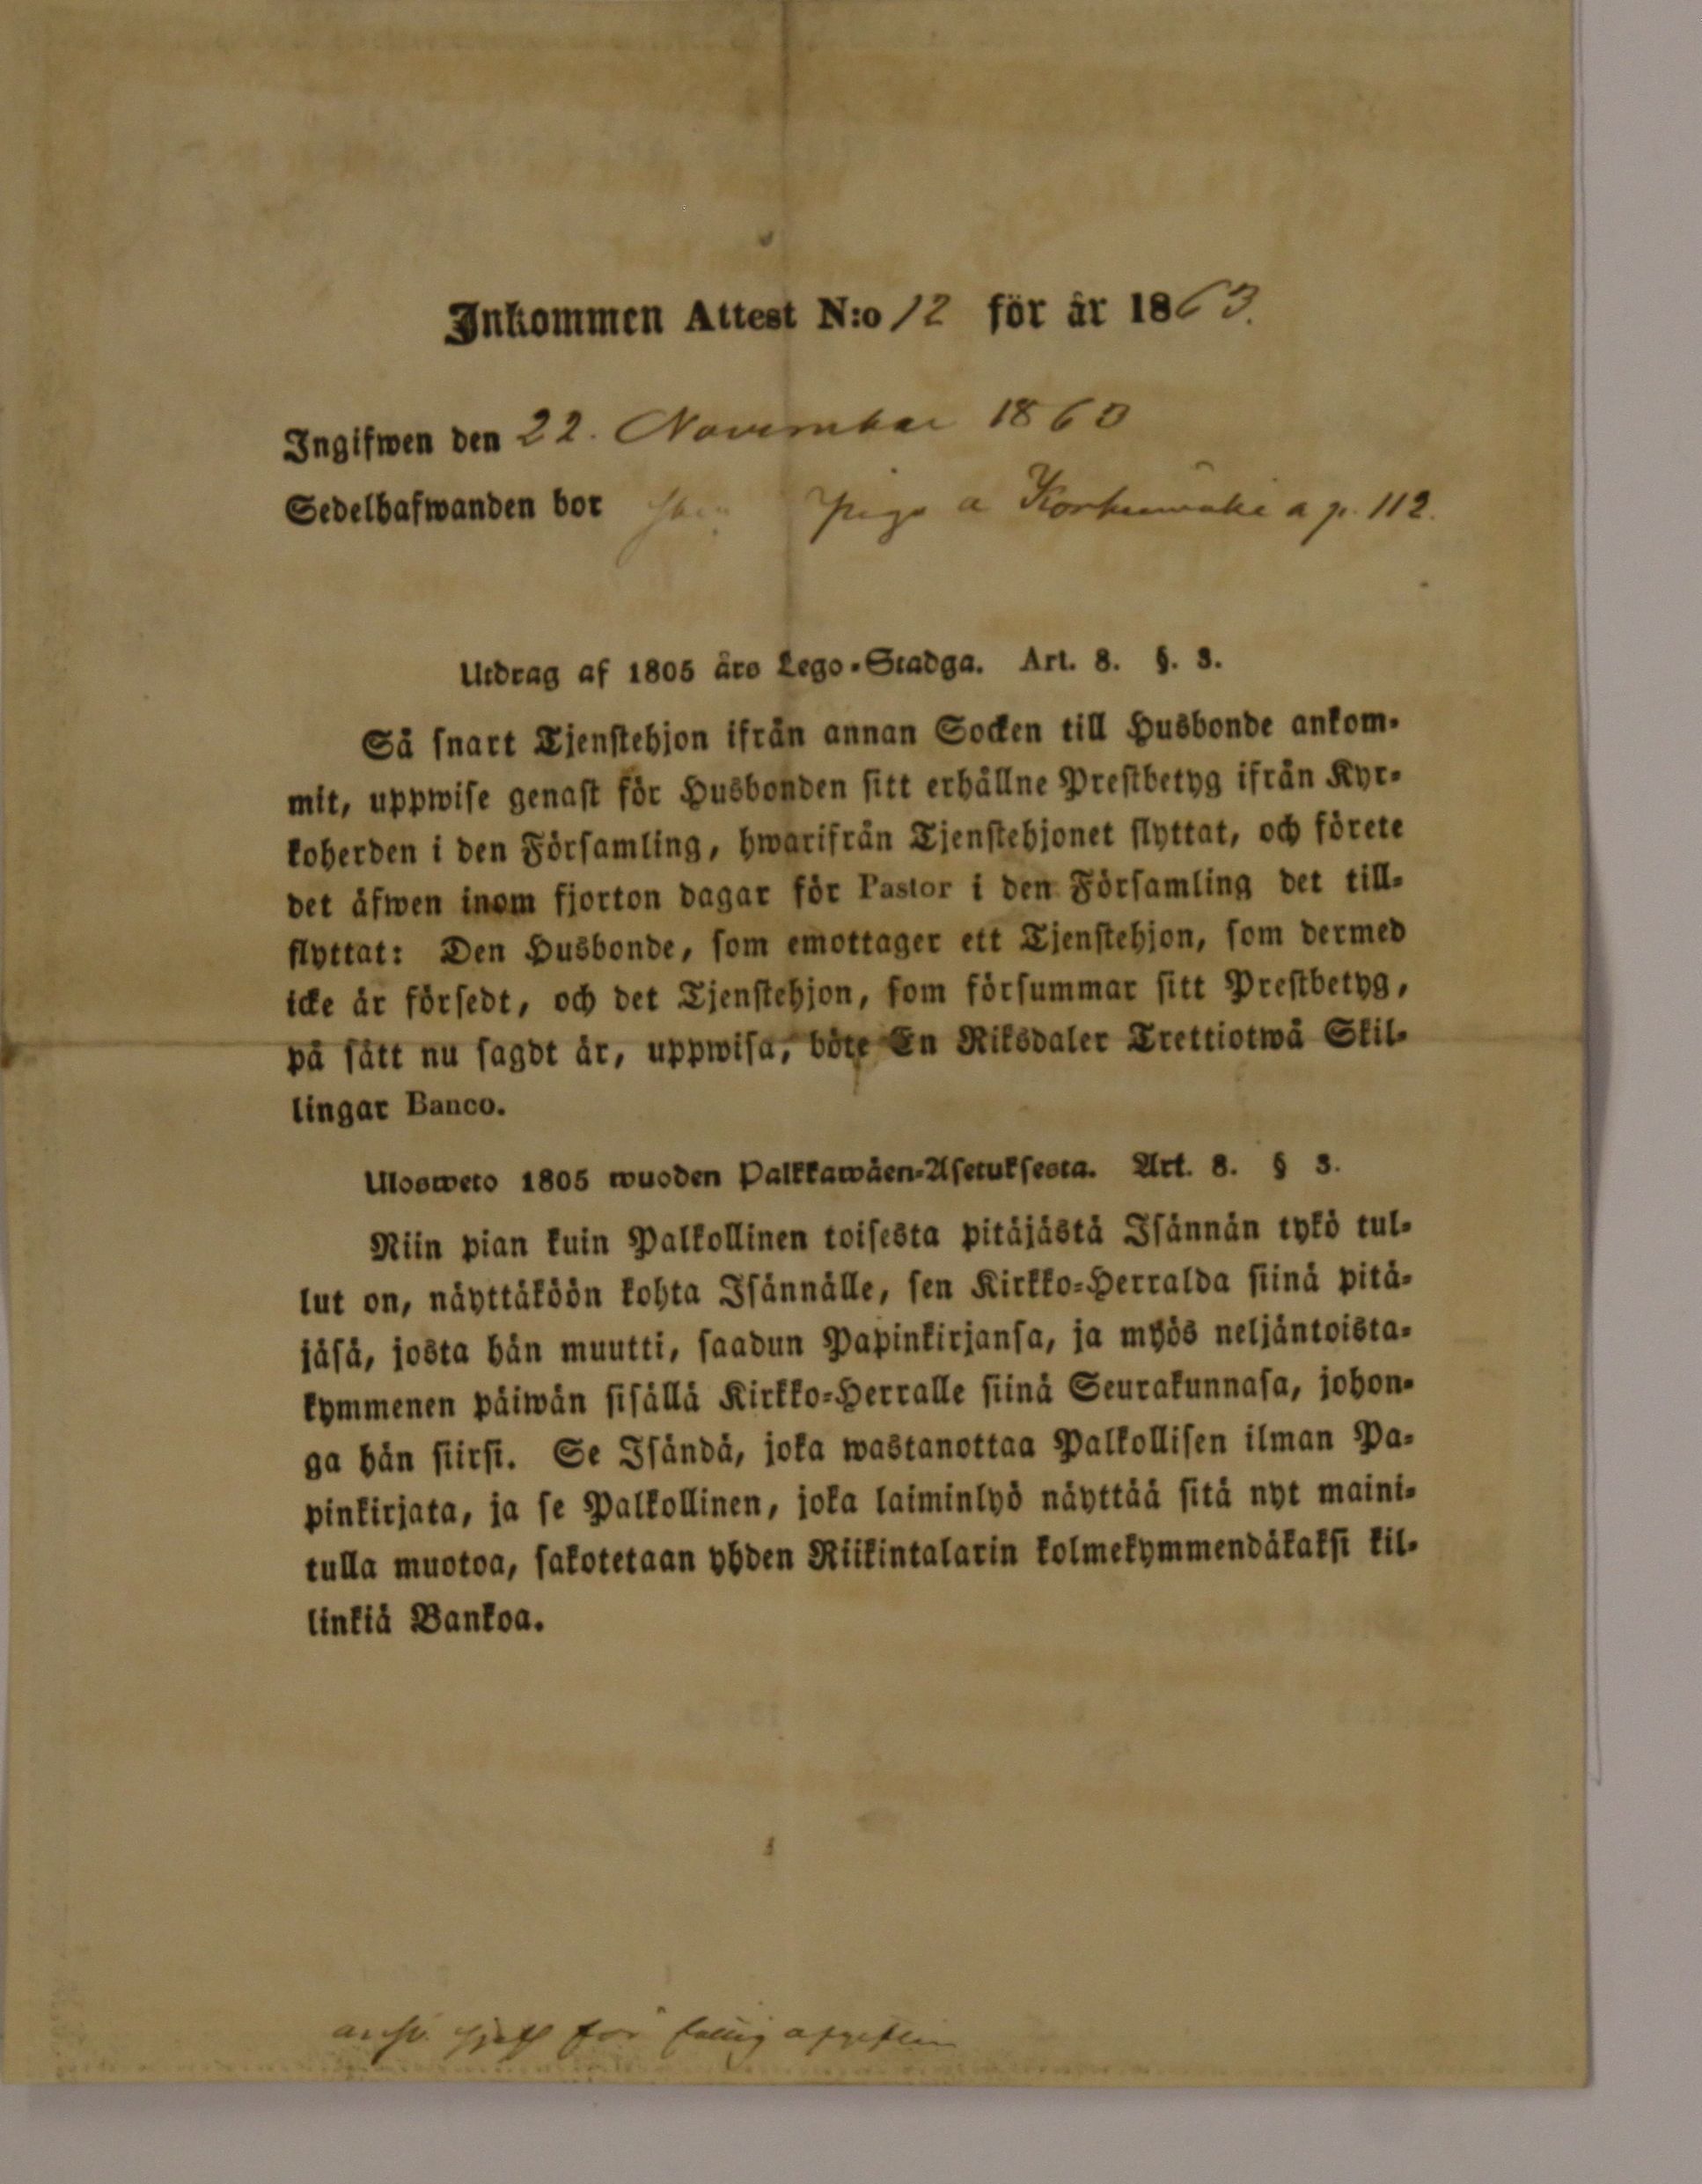 Inkommen Attest N:o 12 för år 1863.
Ingifwen den 22. November 1863
Sedelhafwanden bor piga a Korkeamäki a p. 112.
Utdrag af 1805 års Lego-Stadga. Art. 8. §. 3.
Så snart Tjenstehjon ifrån annan Socken till Husbonde ankom-
mit, uppwise genast för Husbonden sitt erhållne Prestbetyg ifrån Kyr-
koherden i den Församling, hwarifrån Tjenstehjonet flyttat, och förete
det äfwen inom fjorton dagar för Pastor i den Församling det till-
flyttat: Den Husbonde, som emottager ett Tjenstehjon, som dermed
icke är försedt, och det Tjenstehjon, som försummar sitt Prestbetyg,
på sätt nu sagdt är, uppwisa, böte En Riksdaler Trettiotwå Skil-
lingar Banco.
Ulosweto 1805 wuoden Palkkawäen-Asetuksesta. Art. 8. § 3.
Niin pian kuin Palkollinen toisesta pitäjästä Isännän tykö tul-
lut on, näyttäköön kohta Isännälle, sen Kirkko-Herralda siinä pitä-
jäsä, josta hän muutti, saadun Papinkirjansa, ja myös neljäntoista-
kymmenen päiwän sisällä Kirkko-Herralle siinä Seurakunnasa, johon-
ga hän siirsi. Se Isändä, joka wastanottaa Palkollisen ilman Pa-
pinkirjata, ja se Palkollinen, joka laiminlyö näyttää sitä nyt maini-
tulla muotoa, sakotetaan yhden Riikintalarin kolmekymmendäkaksi kil-
linkiä Bankoa.
för